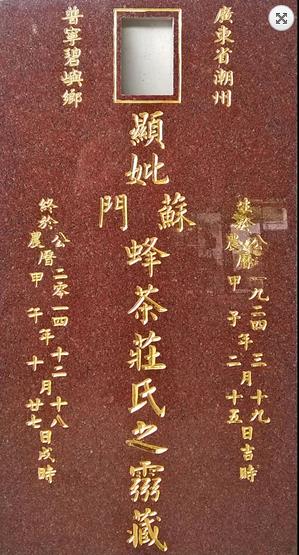 廣東省潮州
普寧碧嶼鄉
顯妣
蘇門
蜂茶莊氏之靈藏
於
公 一九二四 三月十九日吉時
農曆 甲子年二十五
終於
公 二零一四 十二月十八日戌時
農曆 甲午年十廿七